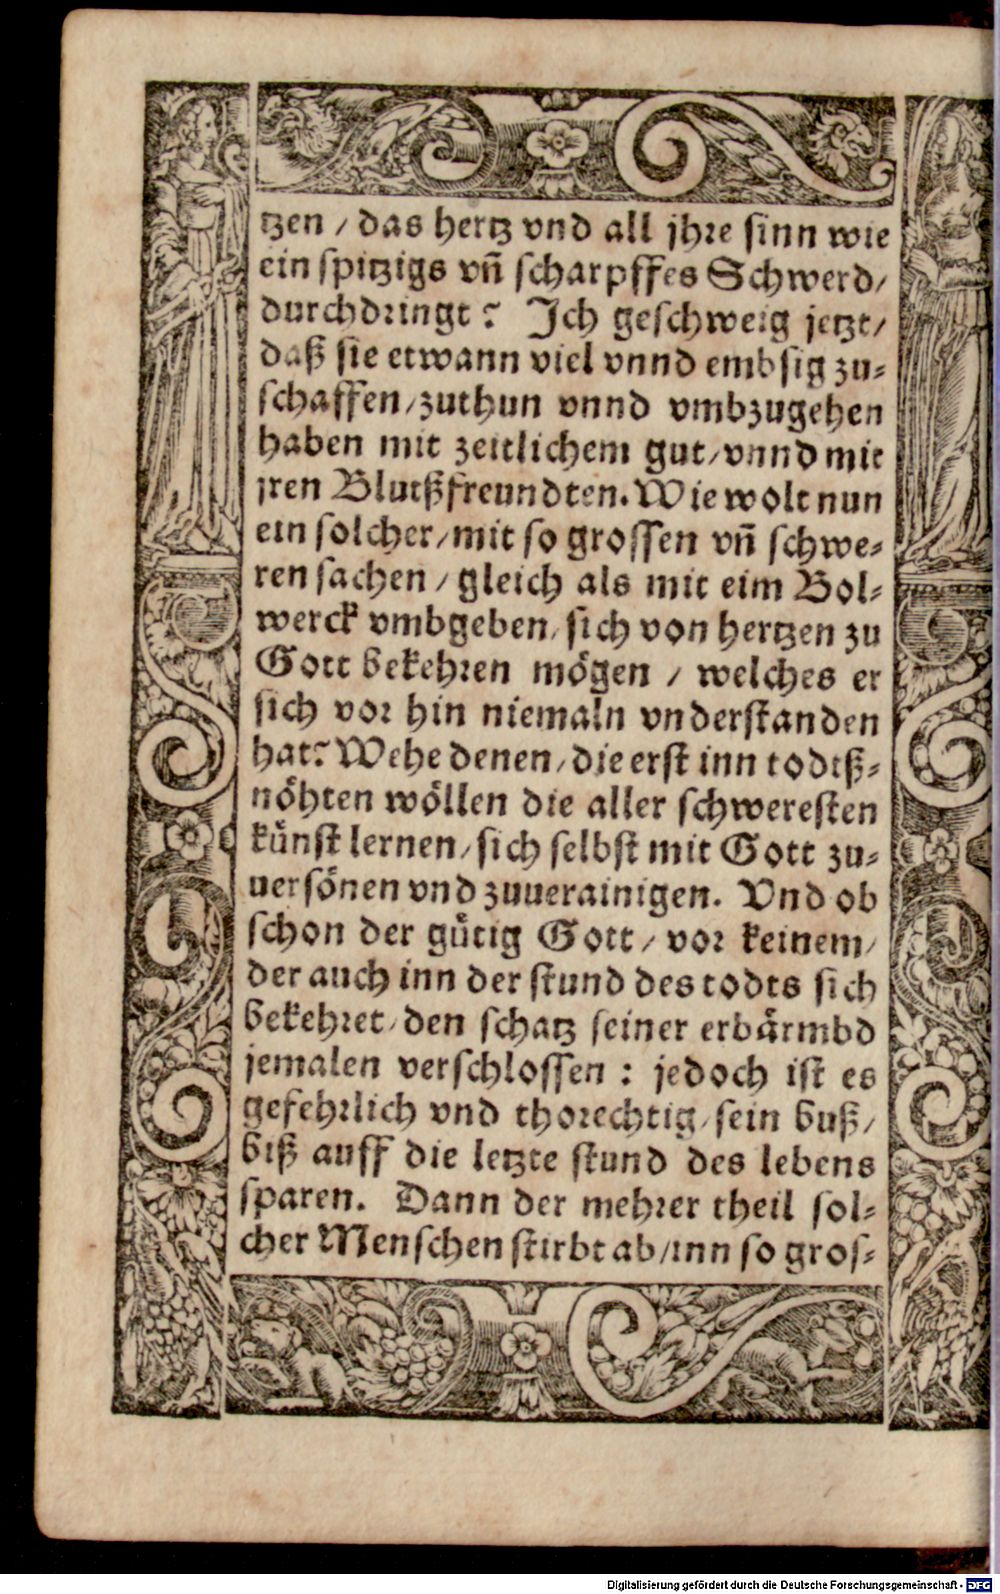 tzen / das hertz vnd all jhre sinn wie
ein spitzigs vñ scharpffes Schwerd/
durchdringt? Ich geschweig jetzt/
daß sie etwann viel vnnd embsig zu-
schaffen/zuthun vnnd vmbzugehen
haben mit zeitlichem gut/vnnd mit
jren Blutßfreundten. Wie wolt nun
ein solcher/mit so grossen vñ schwe-
ren sachen / gleich als mit eim Bol-
werck vmbgeben/sich von hertzen zu
Gott bekehren mögen / welches er
sich vor hin niemaln vnderstanden
hat? Wehe denen/die erst inn todtß-
nöhten wöllen die aller schweresten
künst lernen/sich selbst mit Gott zu-
uersönen vnd zuuerainigen. Vnd ob
schon der gütig Gott/ vor keinem/
der auch inn der stund des todts sich
bekehret/den schatz seiner erbärmbd
jemalen verschlossen : jedoch ist es
gefehrlich vnd thorechtig/sein buß/
biß auff die letzte stund des lebens
sparen. Dann der mehrer theil sol-
cher Menschen stirbt ab/inn so gros-
Digitalisierung gefördert durch die Deutsche Forschungsgemeinschaft - DFG